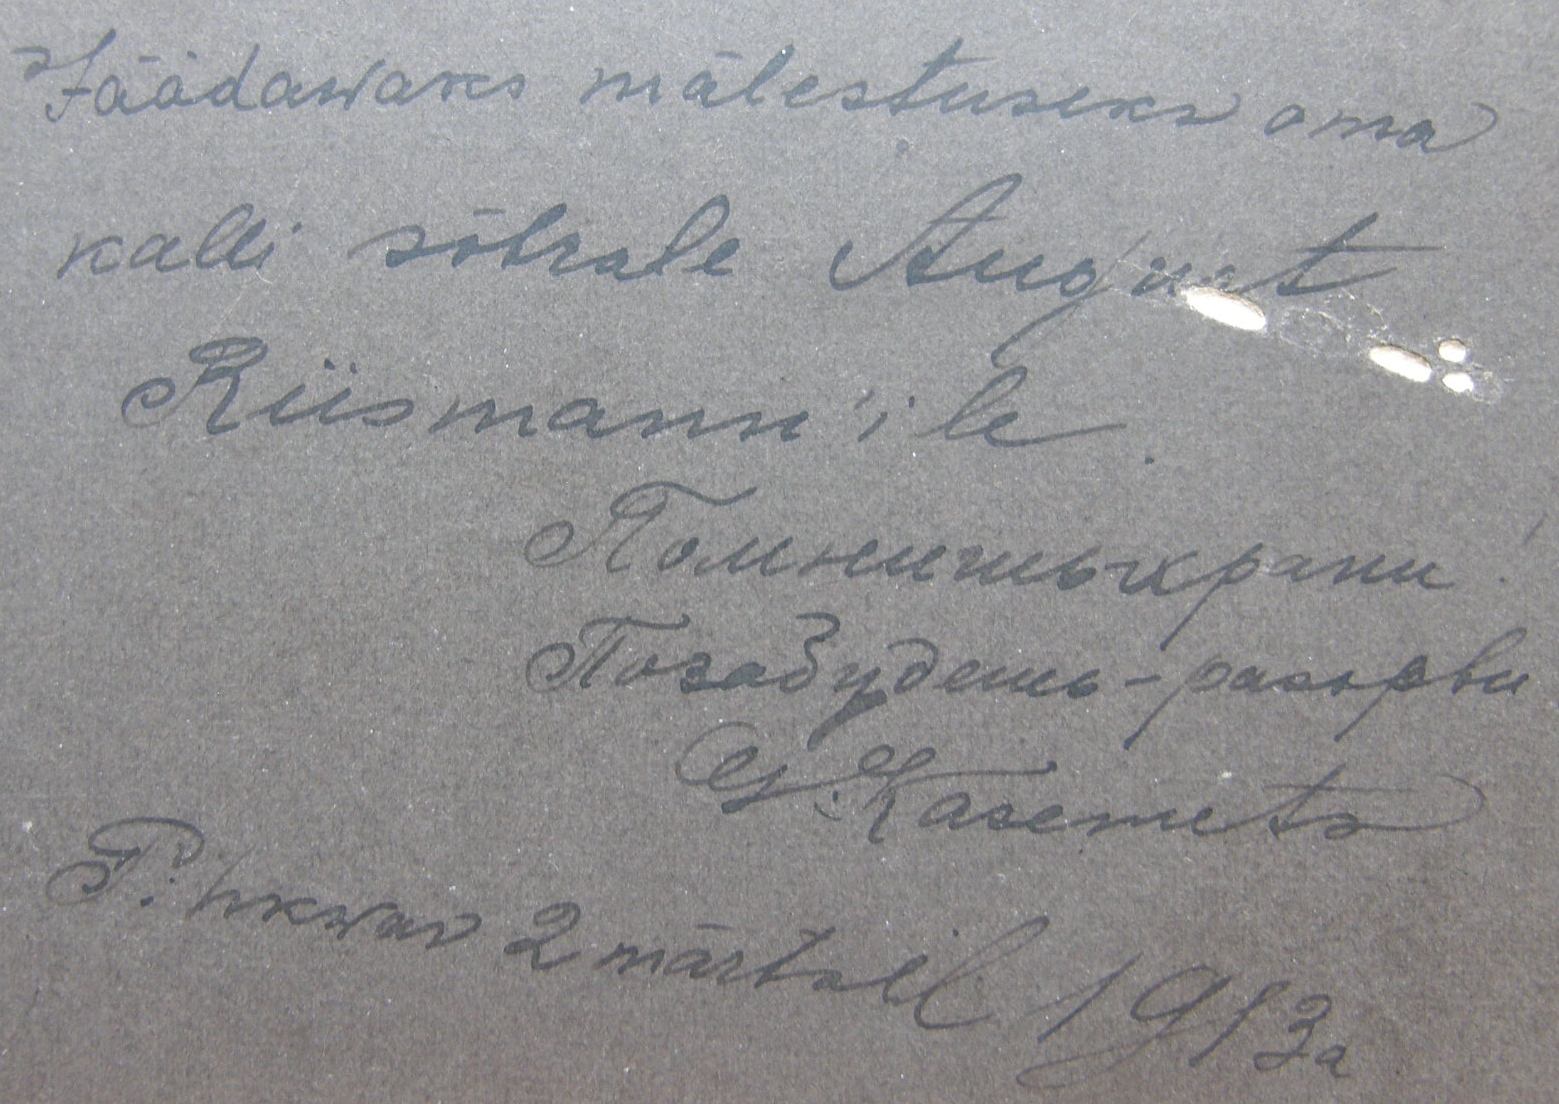 Jäädawaks mälestuseks oma
kalli sõbrale August
Riismann'ile.
Помнишь храни!
Позабудешь - разорви
Kasemets
2 märtsil 1913a